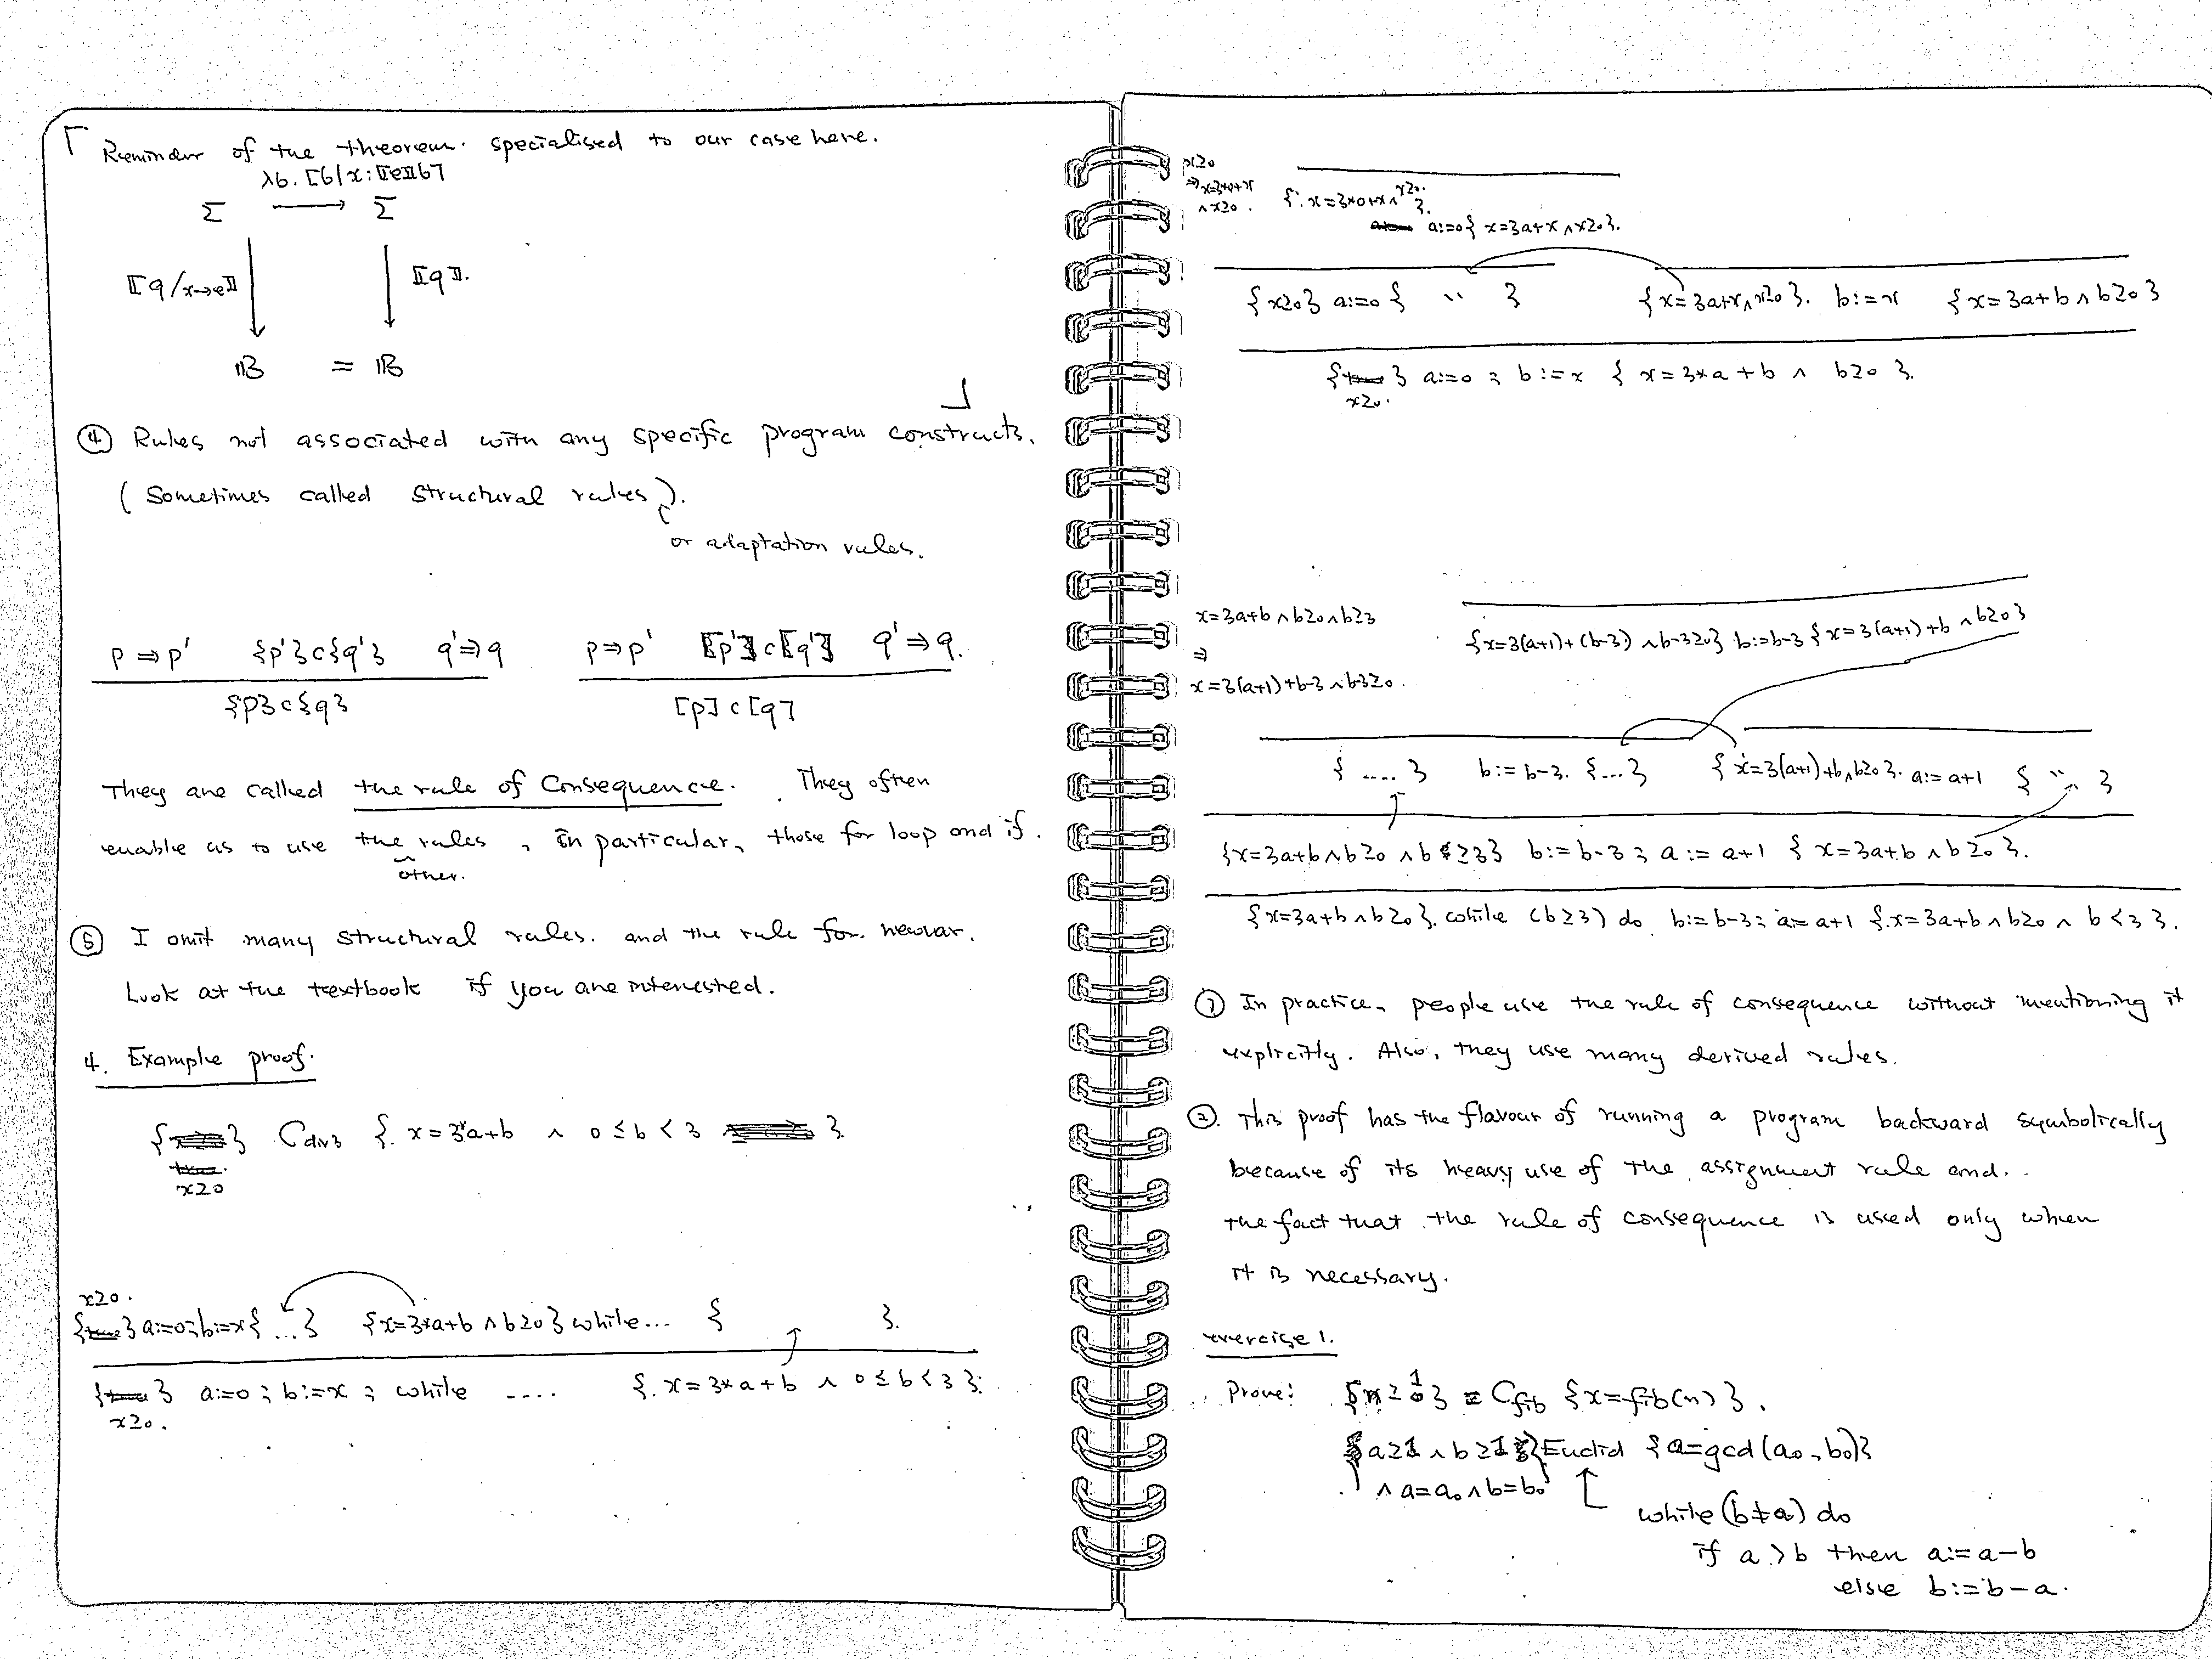 Reminder of the theorem. specialised to our case here.
λb. [b|x:⟦e⟧b]
Σ ⟶ Σ
⟦q/x→e⟧ ⟦q⟧.
𝔹 = 𝔹
④ Rules not associated with any specific program constructs.
(Sometimes called structural rules).
or adaptation rules.
p ⇒ p' {p'}c{q'} q'⇒q p⇒p' [p']c[q'] q'⇒q.
{p}c{q} [p]c[q]
They are called the rule of Consequence. They often
enable us to use the rules, in particular, those for loop and if.
other.
⑤ I omit many structural rules. and the rule for newvar.
Look at the textbook if you are interested.
4. Example proof.
{ } Cdiv3 {. x=3*a+b ∧ 0≤b<3 }.
x≥0
x≥0.
{ } a:=0;b:=x{ ... } {x=3*a+b ∧ b≥0} while... { }.
{ } a:=0 ; b:=x ; while .... {. x=3*a+b ∧ 0≤b<3}.
x≥0.
x≥0
⇒x=3*0+x
∧x≥0.
{. x=3*0+x ∧ x≥0. }.
a:=0{ x=3a+x ∧ x≥0}.
{x≥0} a:=0 { " } {x=3a+x ∧ x≥0}. b:=x {x=3a+b ∧ b≥0}
{ } a:=0 ; b:=x { x=3*a+b ∧ b≥0 }.
x≥0.
x=3a+b ∧ b≥0 ∧ b≥3
⇒
x=3(a+1)+b-3 ∧ b-3≥0.
{x=3(a+1)+(b-3) ∧ b-3≥0} b:=b-3 {x=3(a+1)+b ∧ b≥0}
{ .... } b:=b-3. {...} {x=3(a+1)+b∧b≥0}. a:=a+1 { " }
{x=3a+b ∧ b≥0 ∧ b≥3} b:=b-3 ; a:=a+1 { x=3a+b ∧ b≥0 }.
{x=3a+b ∧ b≥0}. while (b≥3) do b:=b-3; a:=a+1 {.x=3a+b ∧ b≥0 ∧ b<3}.
① In practice, people use the rule of consequence without mentioning it
explicitly. Also, they use many derived rules.
②. This proof has the flavour of running a program backward symbolically
because of its heavy use of the assignment rule and..
the fact that the rule of consequence is used only when
it is necessary.
exercise 1.
Prove: {n≥1} Cfib {x=fib(n)}.
{a≥1 ∧ b≥1 }Euclid {a=gcd(a₀,b₀)}
∧ a=a₀ ∧ b=b₀
while (b≠a) do
if a>b then a:=a-b
else b:=b-a.